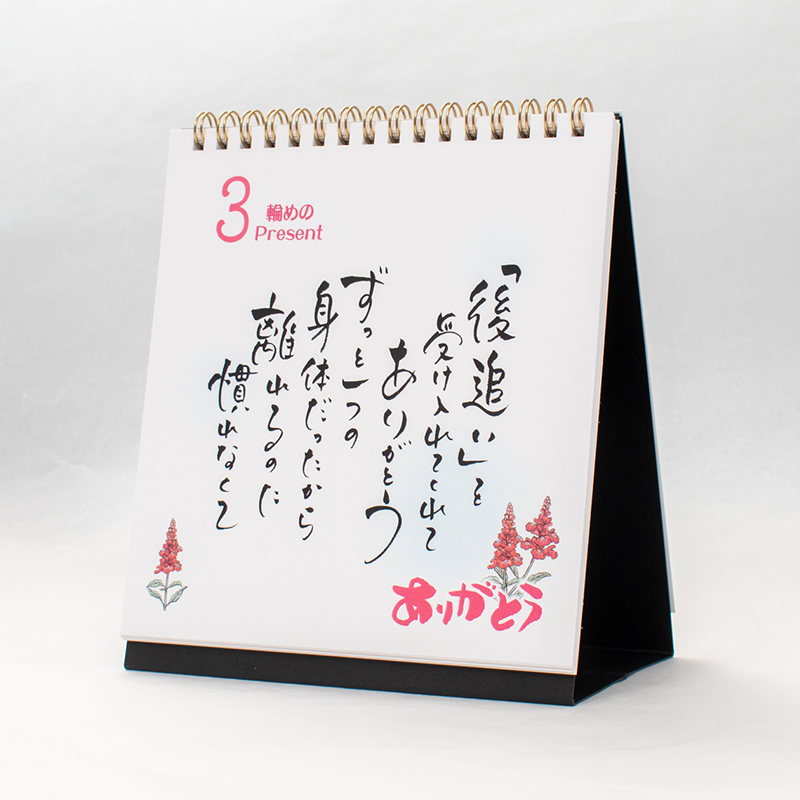 3 輪めの
Present
「後追い」を
受け入れてくれて
ありがとう
ずっと一つの
身体だったから
離れるのに
慣れなくて
ありがとう